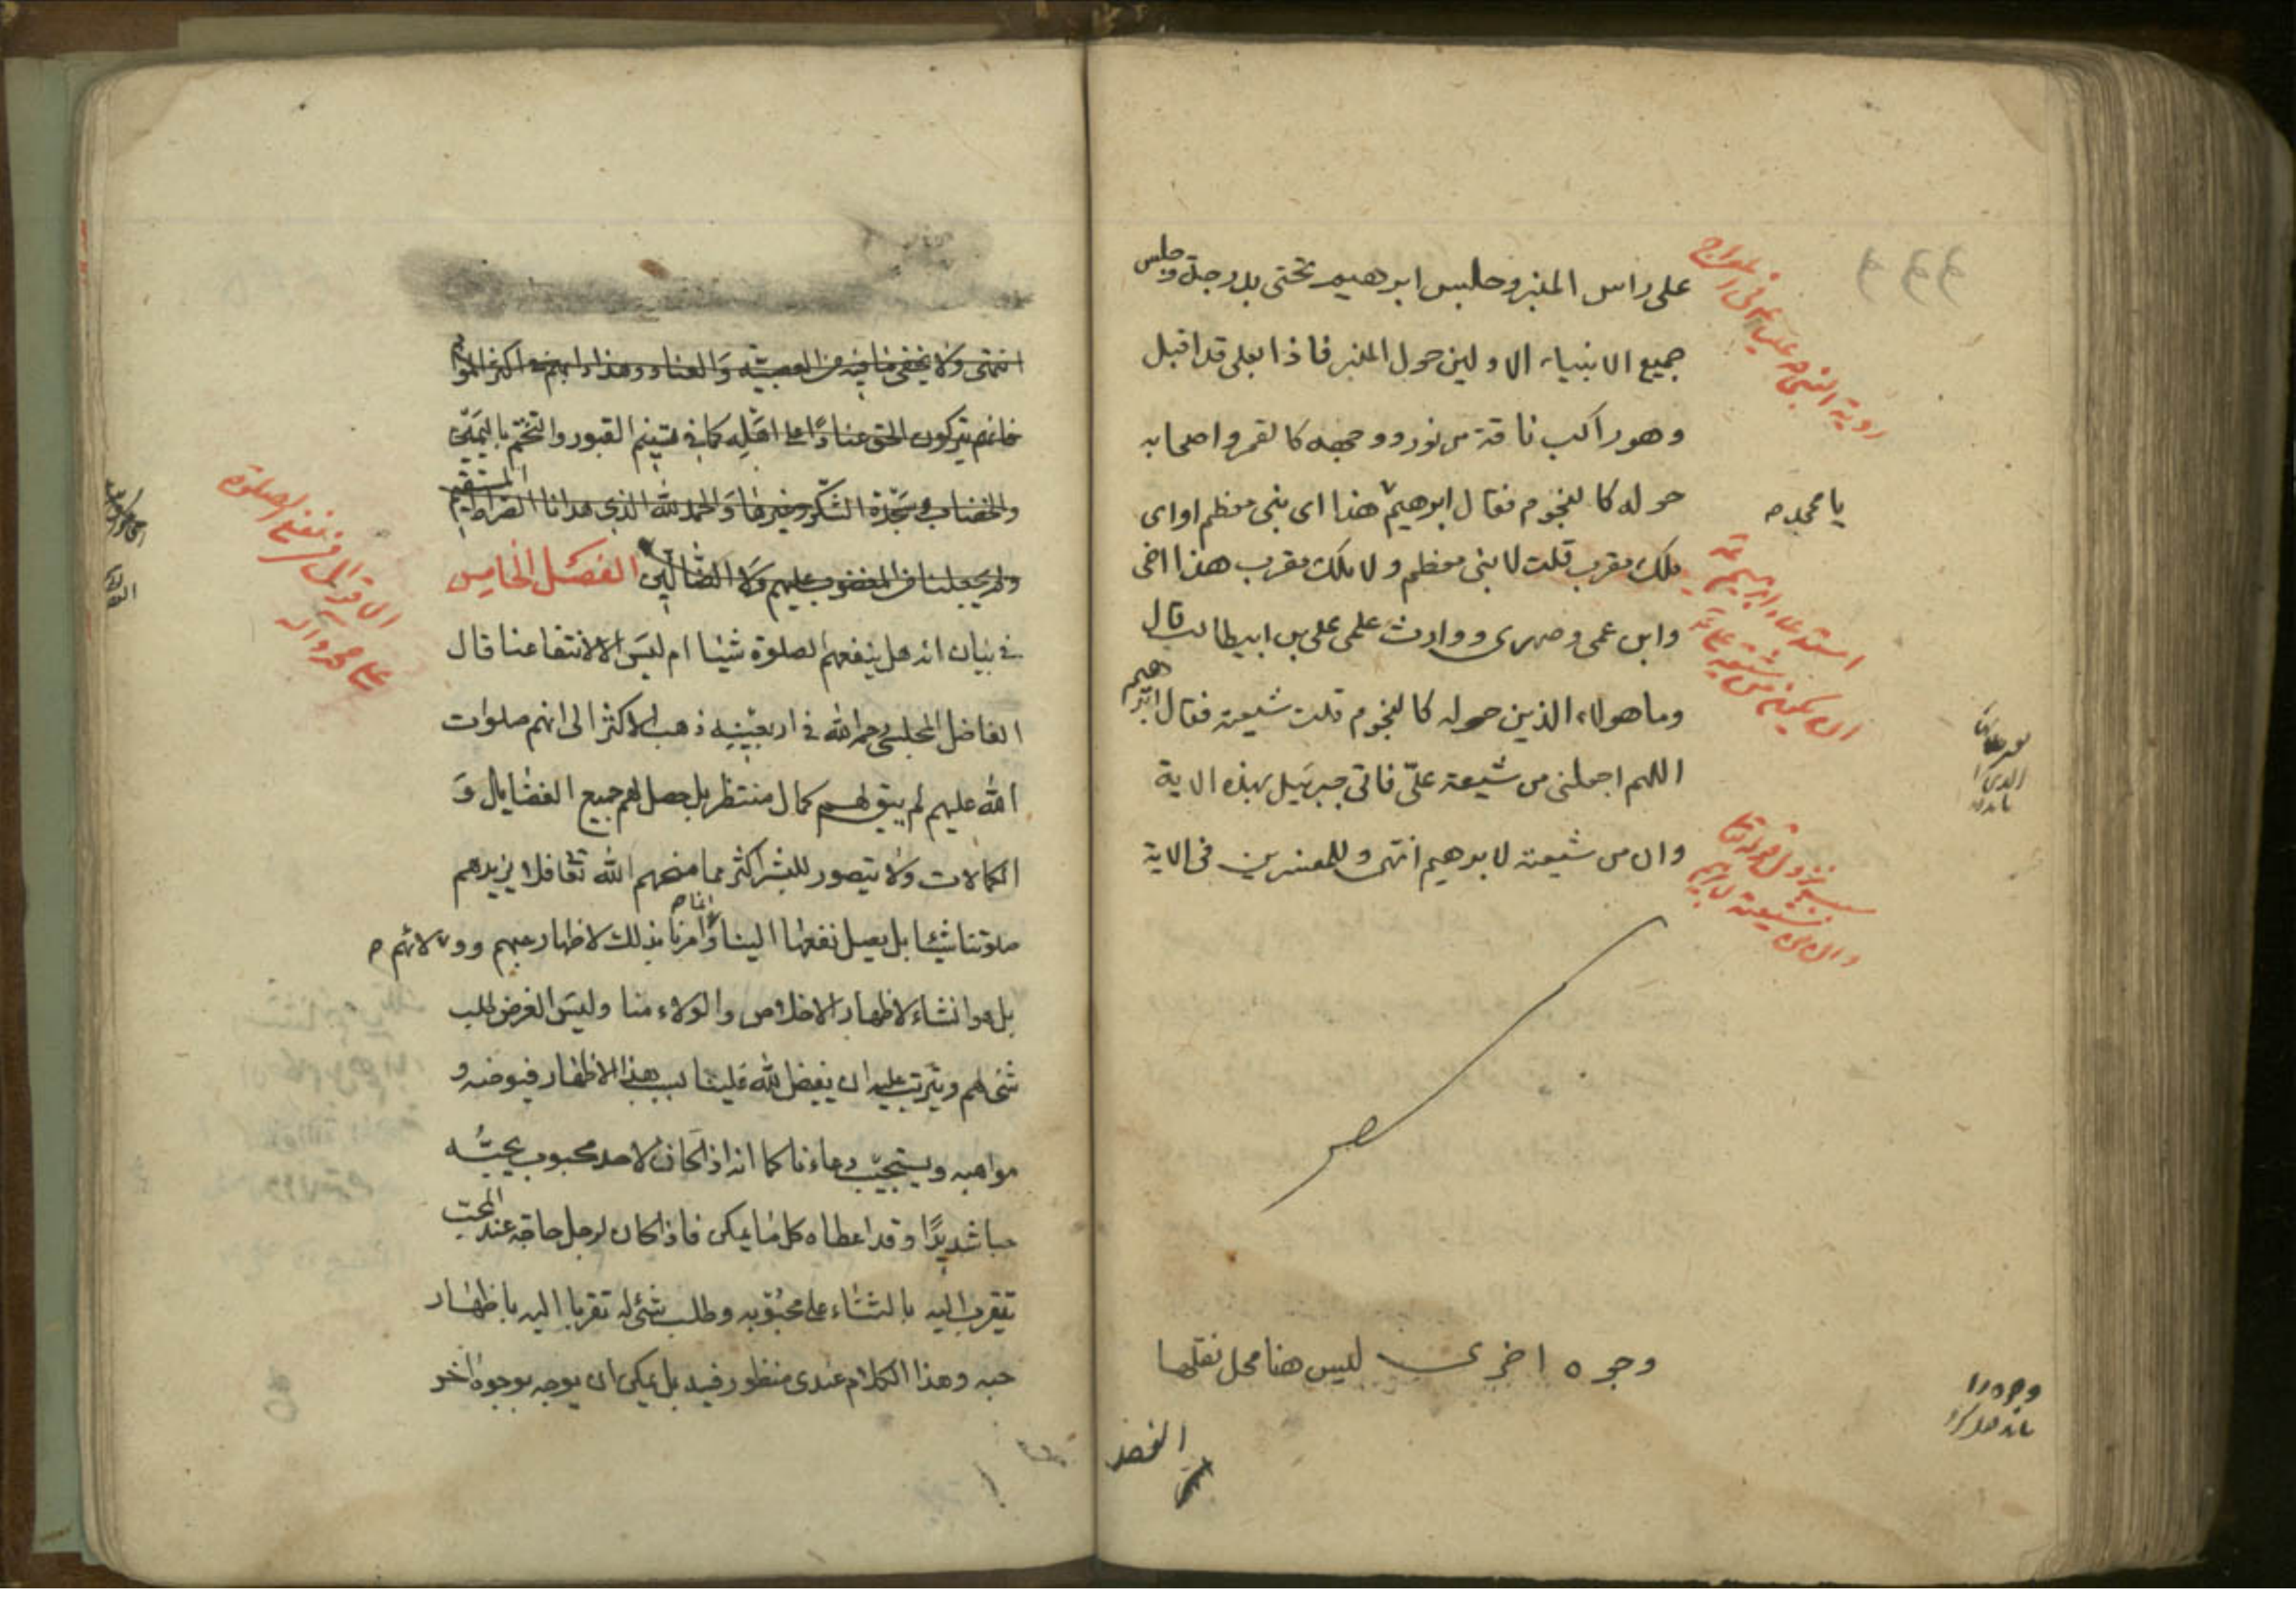 على راس المنبر وجلس ابرهيم تحتى بدرجة وجلس
جميع الانبياء الاولين حول المنبر فاذا بعلى قد اقبل
وهو راكب ناقة من نور ووجهه كالقمر واصحابه
حوله كالنجوم فقال ابرهيم هذا اى نبى معظم او اى
يا محمد ص
ملك مقرب قلت لا نبى معظم ولا ملك مقرب هذا اخى
وابن عمى وصهرى ووارث علمى على بن ابيطالب قال
وما هولاء الذين حوله كالنجوم قلت شيعته فقال ابرهيم
اللهم اجعلنى من شيعة علىّ فاتى جبرئيل بهذه الاية
وان من شيعته لابرهيم انتهى وللمفسرين فى الاية
وجوه اخرى ليس هنا محل نقلها
الفصل
رؤية النبى ص عليا ع فى المعراج
استدعاء ابرهيم
ان يكون من شيعة على
نزول قوله تعا
وان من شيعته لابرهيم
انتهى ولا يخفى ما فيه من العصبيّة وَالعناد وهذا دابهم فى اكثر الموا
فانهم يتركون الحق عنادًا على اهَله كما فى تسنيم القبور والتختم باليَمين
والخضاب وسَجّدة الشكر وغيرها وَالحمد لله الذى هدانا الصّراط المستقيم
ولم يجعلنا من المغضوب عليهم وَلا الضالين الفصَل الخامس
فى بيان انه هل ينفعهم الصلوة شيئا ام ليسَ الا لانتفاعنا قال
الفاضل المجلسى رحمه الله فى اربعينه ذهب الاكثر الى انهم صلوات
الله عليهم لم يبق لهم كمال منتظر بل حصل لهم جميع الفضايل وَ
الكمالات ولا يتصور للبشر اكثر مما منحهم الله تعا فلا يزيدهم
صلوتنا شيئا بل يصل نفعها الينا وامرنا بذلك لاظهار حبهم وولائهم ص
بل هو انشاء لاظهار الاخلاص والولاء منا وليسَ الغرض طلب
شئ لهم ويترتب عليه ان يفيض الله علينا بسبب هذا الاظهار فيوضه و
مواهبه ويستجيب دعاءنا كما انه اذا كان لاحد محبوب يحبّه
حبا شديدًا وقد اعطاه كل ما يمكن فاذا كان لرجل حاجة عند المحب
يتقرب اليه بالثناء على محبوبه وطلب شئ له تقربا اليه باظهار
حبه وهذا الكلام عندى منظور فيه بل يمكن ان يوجه بوجوه اخر
الاقوال فى نفع الصلوة
على محمد واله